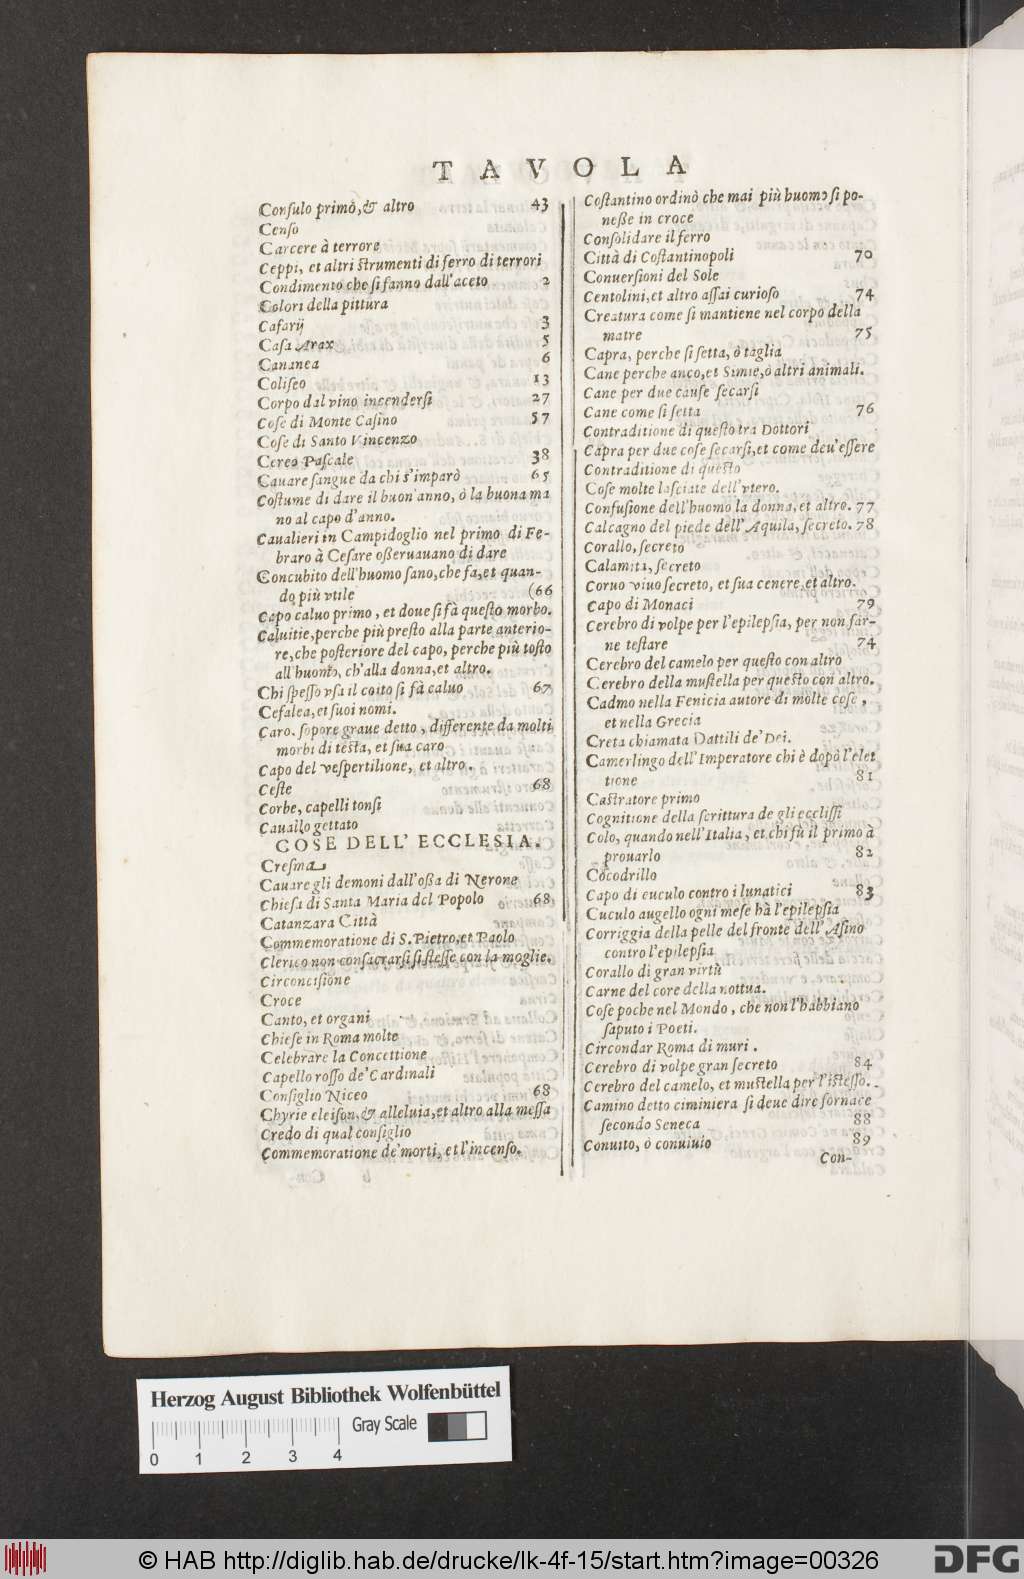 TAVOLA
Conſulo primo, & altro 43
Cenſo
Carcere à terrore
Ceppi, et altri ſtrumenti di ferro di terrori
Condimento che ſi fanno dall'aceto 2
Colori della pittura
Cafarij 3
Caſa Arax 5
Cananea 6
Coliſeo 13
Corpo dal vino incenderſi 27
Coſe di Monte Caſino 57
Coſe di Santo Vincenzo
Cereo Paſcale 38
Cauare ſangue da chi s'imparò 65
Coſtume di dare il buon'anno, ò la buona ma
no al capo d'anno.
Caualieri in Campidoglio nel primo di Fe-
braro à Ceſare oßeruauano di dare
Concubito dell'huomo ſano, che fa, et quan-
do più vtile (66
Capo caluo primo, et doue ſi fà queſto morbo.
Caluitie, perche più preſto alla parte anterio-
re, che poſteriore del capo, perche più toſto
all'huomo, ch'alla donna, et altro.
Chi ſpeſſo vſa il coito ſi fà caluo 67
Cefalea, et ſuoi nomi.
Caro. ſopore graue detto, differente da molti
morbi di teſta, et ſua caro
Capo del veſpertilione, et altro.
Ceſte 68
Corbe, capelli tonſi
Cauallo gettato
COSE DELL'ECCLESIA.
Creſma
Cauare gli demoni dall'oßa di Nerone
Chieſa di Santa Maria del Popolo 68
Catanzara Città
Commemoratione di S. Pietro, et Paolo
Clerico non conſacrarſi ſi ſteſſe con la moglie.
Circonciſione
Croce
Canto, et organi
Chieſe in Roma molte
Celebrare la Concettione
Capello roſſo de' Cardinali
Conſiglio Niceo 68
Chyrie eleiſon, & alleluia, et altro alla meſſa
Credo di qual conſiglio
Commemoratione de' morti, et l'incenſo.
Coſtantino ordinò che mai più huomo ſi po-
neße in croce
Conſolidare il ferro
Città di Coſtantinopoli 70
Conuerſioni del Sole
Centolini, et altro aſſai curioſo 74
Creatura come ſi mantiene nel corpo della
matre 75
Capra, perche ſi ſetta, ò taglia
Cane perche anco, et Simie, ò altri animali.
Cane per due cauſe ſecarſi
Cane come ſi ſetta 76
Contraditione di queſto tra Dottori
Capra per due coſe ſecarſi, et come deu'eſſere
Contraditione di queſto
Coſe molte laſciate dell'vtero.
Confuſione dell'huomo la donna, et altro. 77
Calcagno del piede dell'Aquila, ſecreto. 78
Corallo, ſecreto
Calamita, ſecreto
Coruo viuo ſecreto, et ſua cenere, et altro.
Capo di Monaci 79
Cerebro di volpe per l'epilepſia, per non far-
ne teſtare 74
Cerebro del camelo per queſto con altro
Cerebro della muſtella per queſto con altro.
Cadmo nella Fenicia autore di molte coſe,
et nella Grecia
Creta chiamata Dattili de' Dei.
Camerlingo dell'Imperatore chi è dopò l'elet
tione 81
Caſtratore primo
Cognitione della ſcrittura de gli eccliſſi
Colo, quando nell'Italia, et chi fù il primo à
prouarlo 82
Cocodrillo
Capo di cuculo contro i lunatici 83
Cuculo augello ogni meſe hà l'epilepſia
Corriggia della pelle del fronte dell'Aſino
contro l'epilepſia
Corallo di gran virtù
Carne del core della nottua.
Coſe poche nel Mondo, che non l'habbiano
ſaputo i Poeti.
Circondar Roma di muri.
Cerebro di volpe gran ſecreto 84
Cerebro del camelo, et muſtella per l'iſteſſo.
Camino detto ciminiera ſi deue dire fornace
ſecondo Seneca 88
Conuito, ò conuiuio 89
Con-
Herzog August Bibliothek Wolfenbüttel
Gray Scale
0 1 2 3 4
© HAB http://diglib.hab.de/drucke/lk-4f-15/start.htm?image=00326
DFG